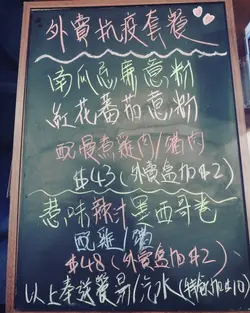 外賣抗疫套餐
南瓜忌廉意粉
紅花番茄意粉
配慢煮雞肉/豬肉
$43(外賣盒加$2)
惹味辣汁墨西哥卷
配雞/豬
$48(外賣盒加$2)
以上奉送餐湯/汽水(特飲加$10)